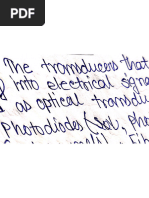 The transducers that
into electrical signa
as optical transdu
Photodiodes (Sol, Pho